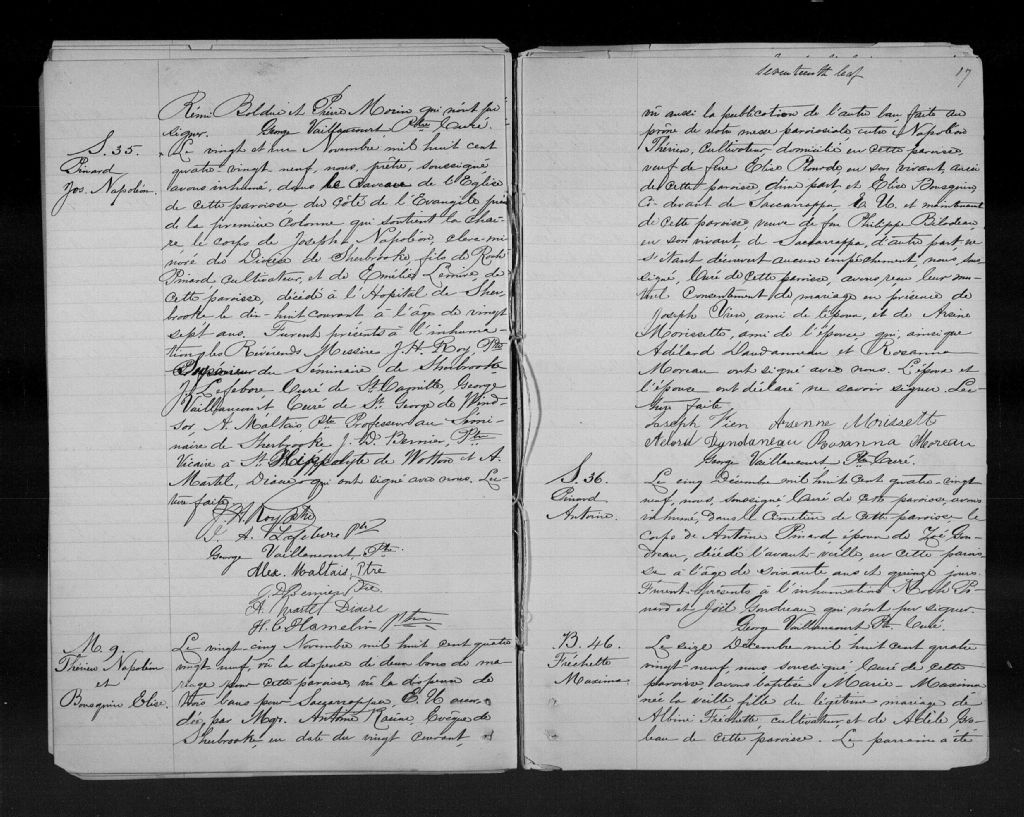 Rémi Bolduc et Pierre Morin qui n'ont su
signer. George Vaillancourt Ptre Curé.
S. 35.
Pinard
Jos. Napoléon.
Le vingt et un Novembre mil huit cent
quatre-vingt neuf, nous, prêtre, soussigné
avons inhumé, dans le caveau de l'Eglise
de cette paroisse du côté de l'Evangile près
de la première colonne qui soutient la chai-
re le corps de Joseph Napoléon, clerc-mi-
noré du Diocèse de Sherbrooke, fils de Roch
Pinard cultivateur, et de Emélie Lemire de
cette paroisse, décédé à l'Hopital de Sher-
brooke le dix-huit courant à l'âge de vingt
sept ans. Furent présents à l'inhuma-
tion les Révérends Messires J. H. Roy, Ptre
Supérieur du Séminaire de Sherbrooke
J. Lefebvre, Curé de St Camille, George
Vaillancourt Curé de St. George de Wind-
sor, A. Maltais, Ptre Professeur au Sémi-
naire de Sherbrooke J. D. Bernier, Ptre
Vicaire à St. Hippolyte de Wotton et A.
Martel, Diacre qui ont signé avec nous. Lec-
ture faite
J. H. Roy Ptre
J. A. Lefebvre Ptr
George Vaillancourt, Ptre.
Alex. Maltais, Ptre
J. D. Bernier Ptre
A. Martel Diacre
H. C. Hamelin Ptre
M. 9.
Thérien Napoléon
et
Bousquin Elise.
Le vingt-cinq Novembre mil huit cent quatre
vingt neuf, vû la dispense de deux bans de ma-
riage pour cette paroisse, vû la dispense de
trois bans pour Saccarrappa E. U accor-
dée par Mgr. Antoine Racine, Evêque de
Sherbrooke, en date du vingt courant,
seventeenth leaf 17
vû aussi la publication de l'autre ban faite au
prône de notre messe paroissiale entre Napoléon
Thérien, cultivateur domicilié en cette paroisse,
veuf de feue Elise Plourde en son vivant aussi
de cette paroisse d'une part, et Elise Bousquin
Ci-devant de Saccarrappa E. U. et maintenant
de cette paroisse, veuve de feu Philippe Bilodeau
en son vivant, de Saccarrappa, d'autre part ne
s'étant découvert aucun empêchement, nous, sous-
signé, Curé de cette paroisse, avons reçu leur mu-
tuel consentement de mariage en présence de
Joseph Vien, ami de l'époux, et de Arsène
Morissette, ami de l'épouse, qui, ainsi que
Adélard Daudanneau et Rosanna
Moreau ont signé avec nous. L'époux et
l'épouse ont déclaré ne savoir signer. Lec-
ture faite
Joseph Vien Arsenne Moissett
Adord Dandaneau Rosanna Moreau
George Vaillancourt Ptre Curé.
S. 36.
Pinard
Antoine.
Le cinq Décembre mil huit cent quatre-vingt
neuf, nous, soussigné Curé de cette paroisse, avons
inhumé, dans le cimetière de cette paroisse le
corps de Antoine Pinard époux de Zoé Gou-
dreau, décédé l'avant veille, en cette parois-
se à l'âge de soixante ans et quinze jours.
Furent présents à l'inhumation Roch Pi-
nard et Joël Goudreau qui n'ont pu signer.
George Vaillancourt Ptre Curé.
B. 46.
Fréchette
Maxima.
Le seize Décembre mil huit cent quatre
vingt neuf, nous soussigné Curé de cette
paroisse avons baptisée Marie-Maxima
née la veille fille du légitime mariage de
Albini Fréchette, cultivateur, et de
de cette paroisse. Le parrain a été